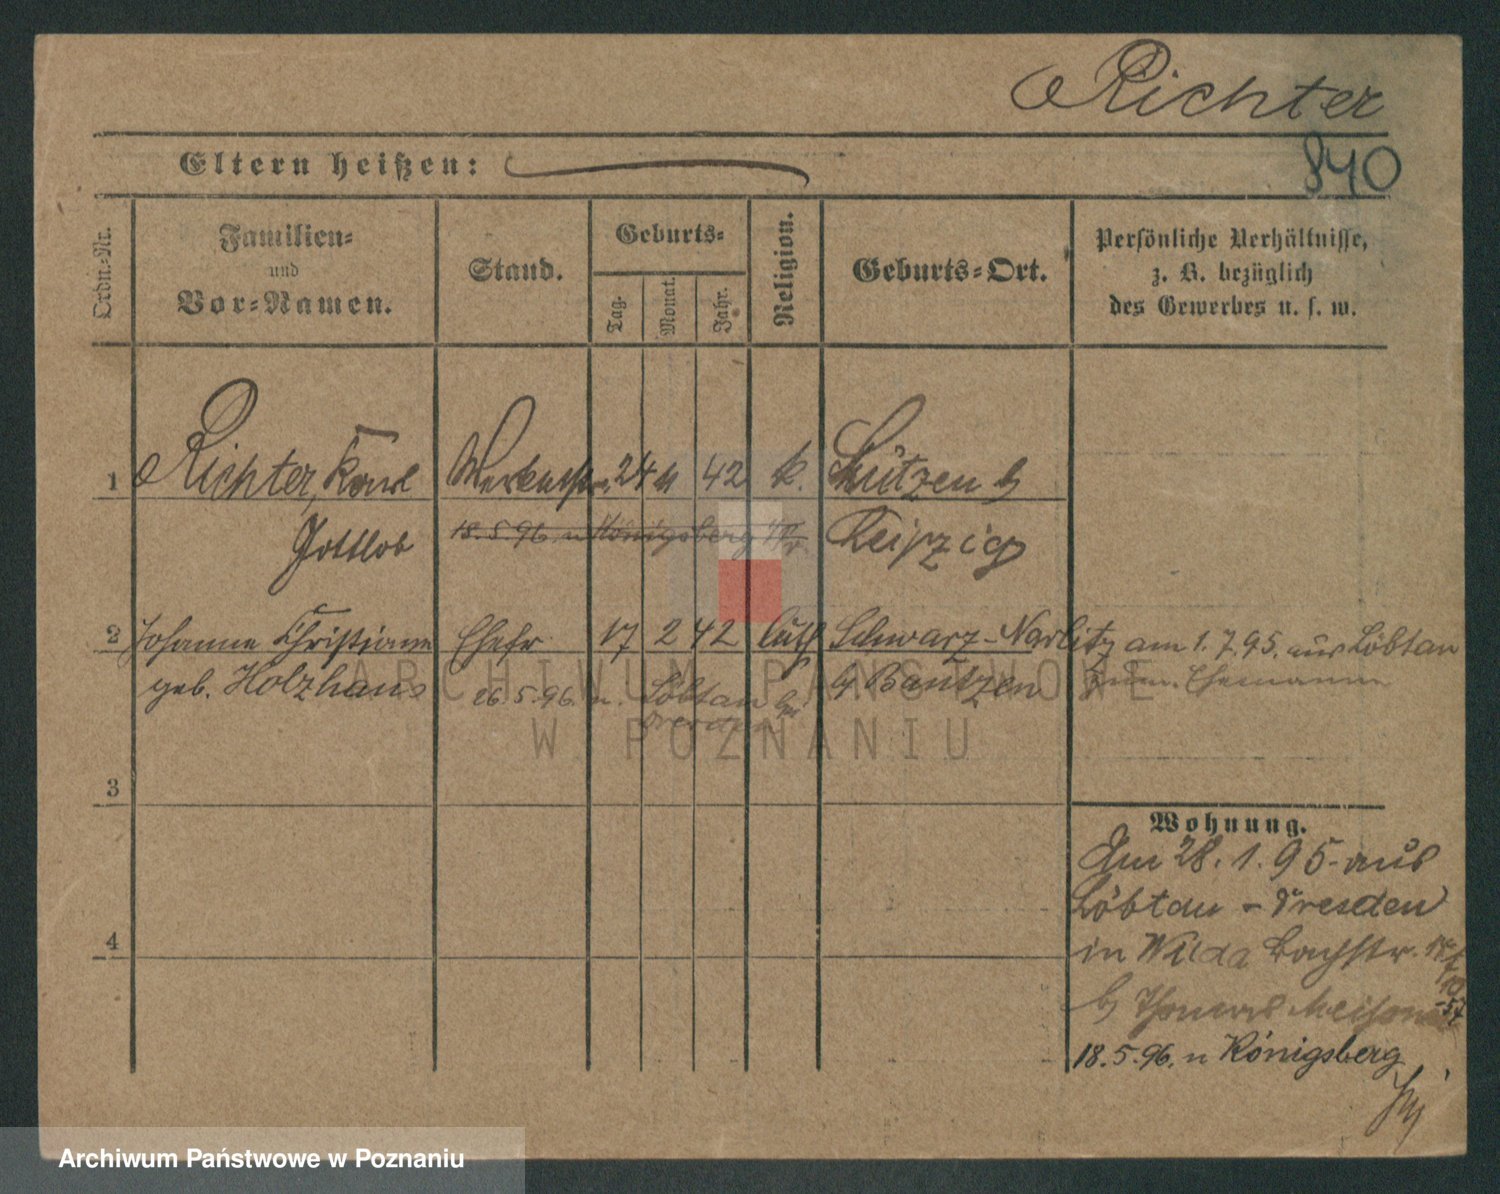 Richter
840
Eltern heißen:
Ordn.-Nr.
Familien-
und
Vor-Namen.
Stand.
Geburts-
Tag.
Monat.
Jahr.
Religion.
Geburts-Ort.
Persönliche Verhältnisse,
z. B. bezüglich
des Gewerbes u. s. w.
1 Richter, Karl 24 11 42 k. Lützen b
Gottlob 18.5.96 n Königsberg Leipzig
2 Johanne Christiane Ehefr 17 2 42 luth Schwarz-Narlitz am 1.7.95. aus Löbtau
geb. Holzhaus 26.5.96. n. Löbtau bei b Bautzen zum Ehemanne
Dresden
3
Wohnung.
Am 28.1.95 aus
Löbtau - Dresden
4
in Wilda Bachstr.
b Thomas
18.5.96. n Königsberg
ARCHIWUM PAŃSTWOWE
W POZNANIU
Archiwum Państwowe w Poznaniu